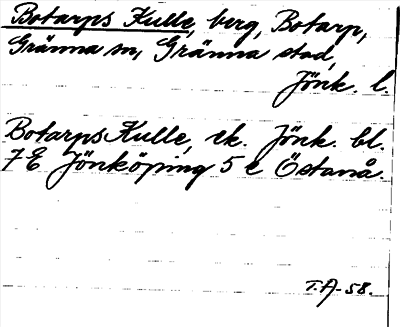 Botarps Kulle, berg, Botarp,
Gränna sn, Gränna stad,
Jönk. l.
Botarps Kulle, ek. Jönk. bl.
7 E Jönköping 5 e Östanå.
T.A-58.